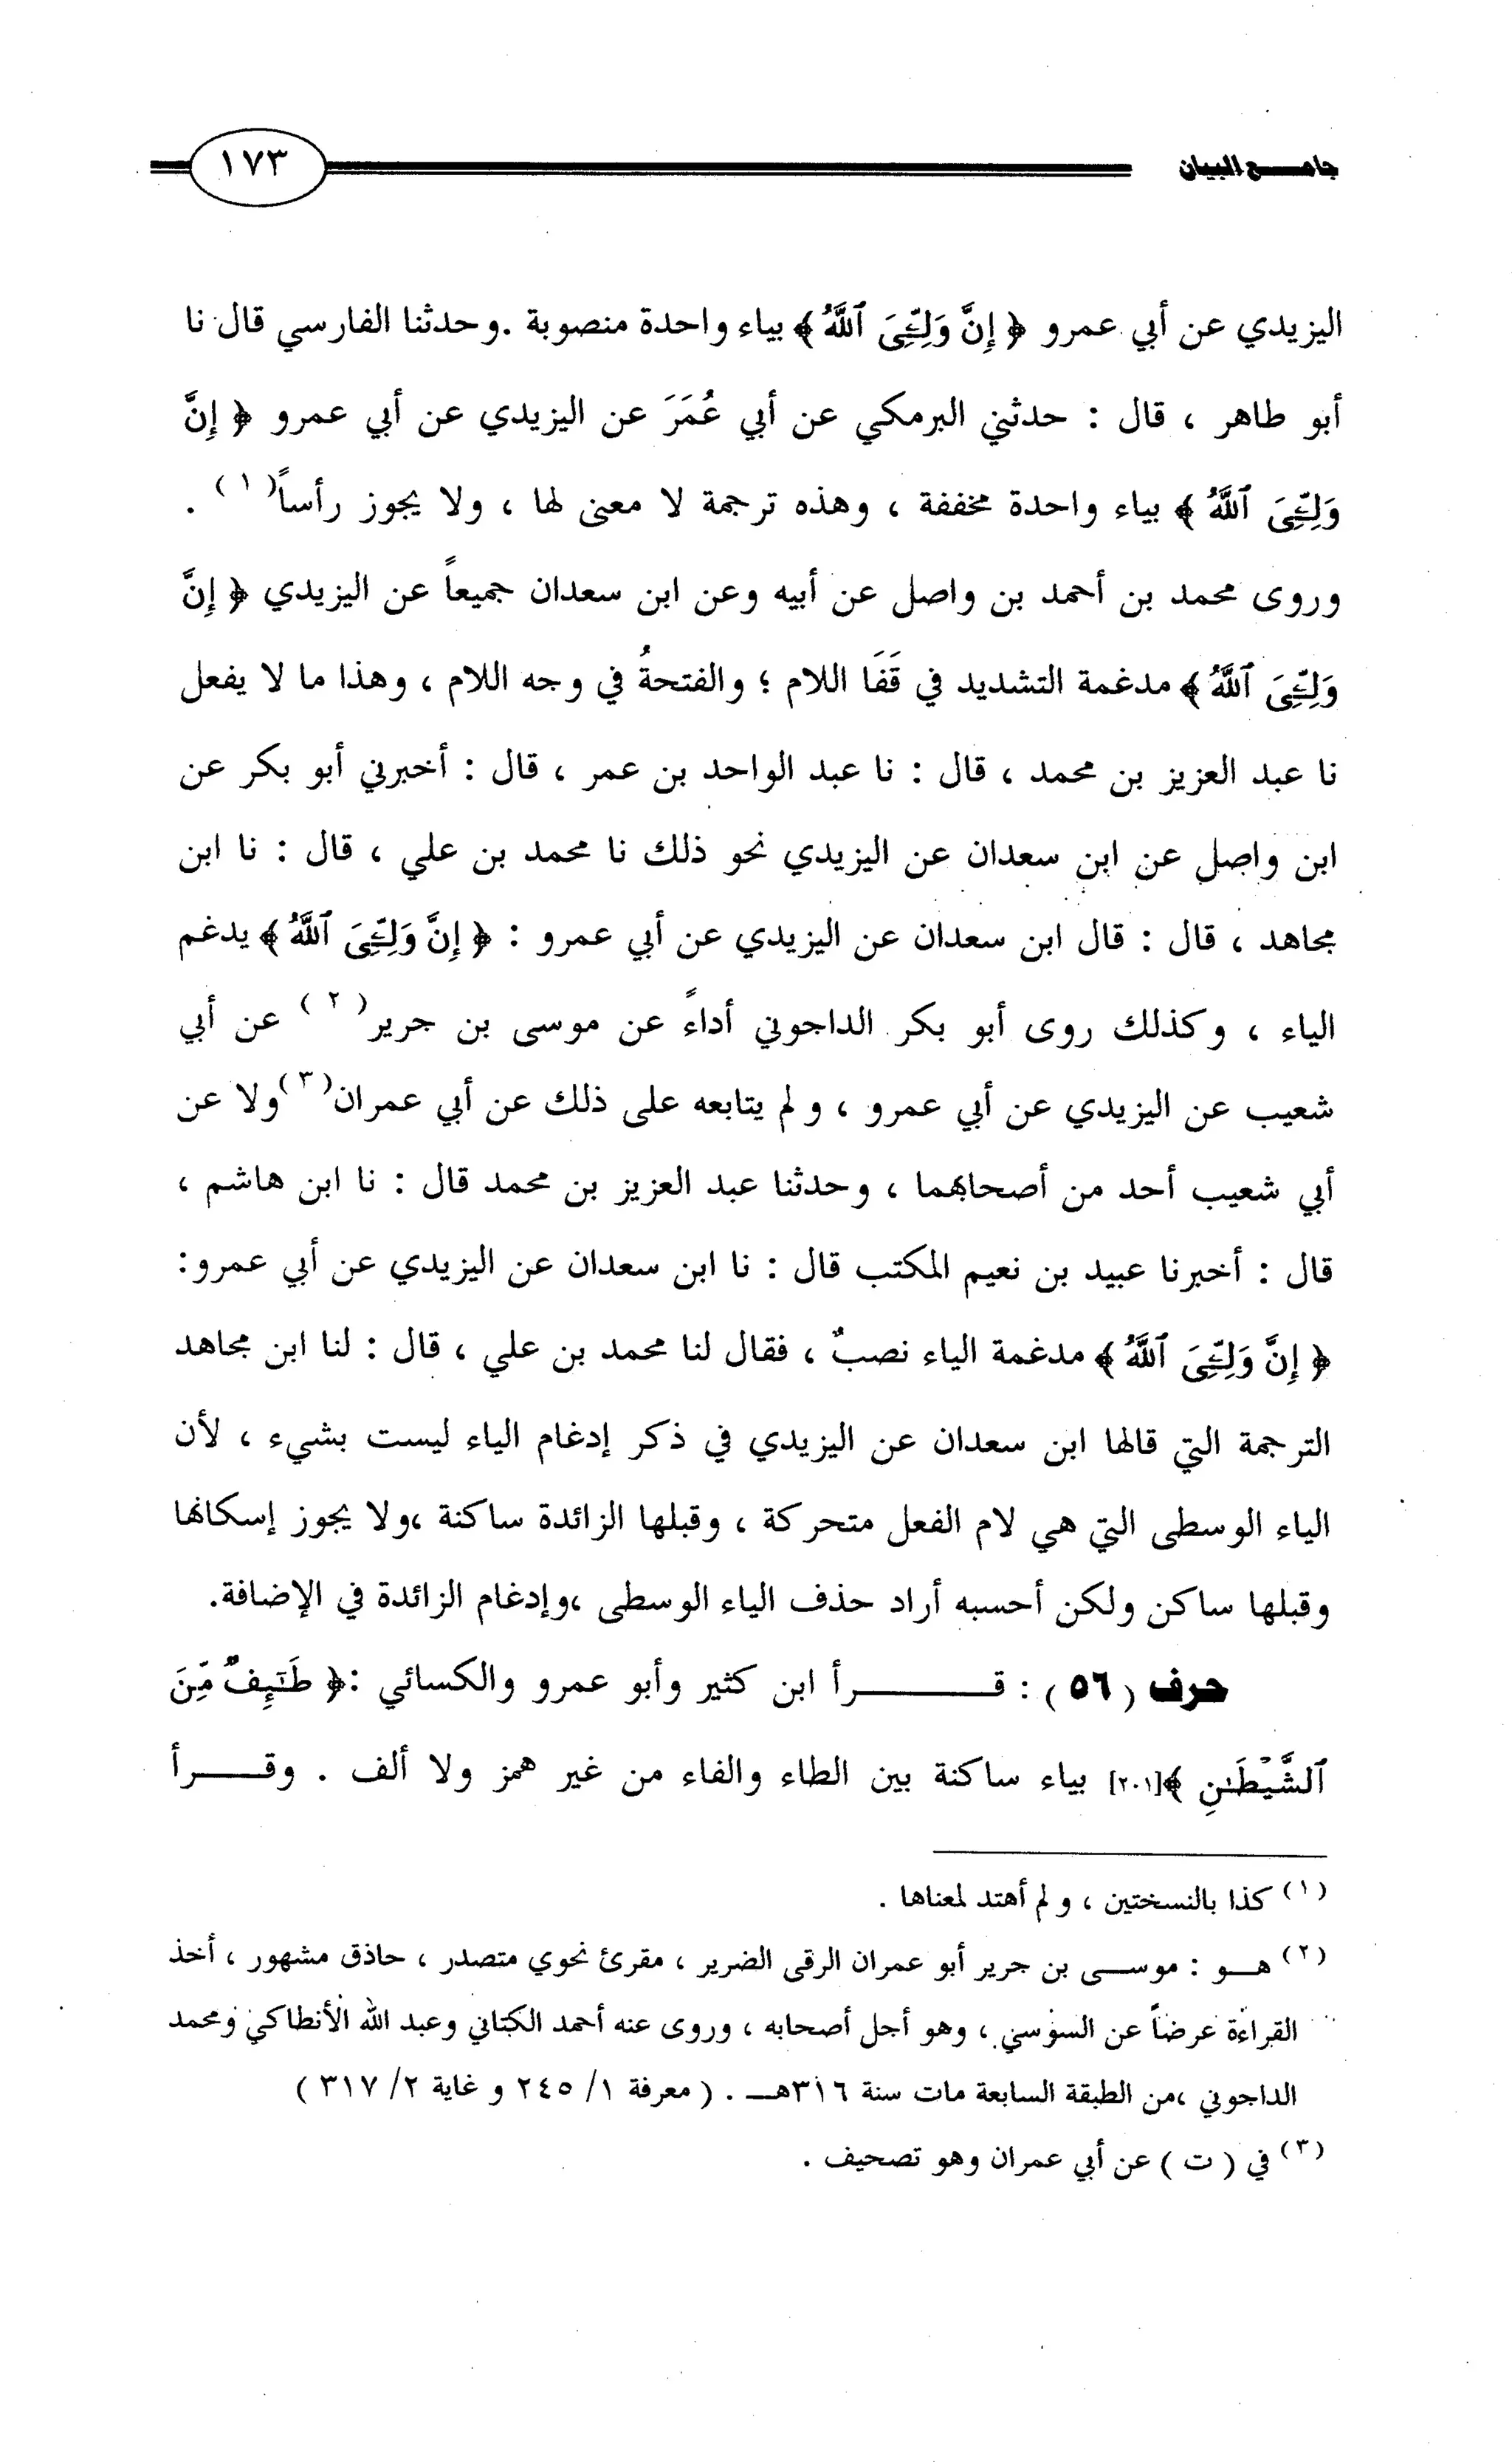 جامع البيان
١٧٣
اليزيدي عن أبي عمرو ﴿ إِنَّ وَلِـِّۧىَ ٱللَّهُ ﴾ بياء واحدة منصوبة .وحدثنا الفارسي قال نا
أبو طاهر ، قال : حدثني البرمكي عن أبي عُمَرَ عن اليزيدي عن أبي عمرو ﴿ إِنَّ
وَلِـِّۧىَ ٱللَّهُ ﴾ بياء واحدة مخففة ، وهذه ترجمة لا معنى لها ، ولا يجوز رأساً(١) .
وروى محمد بن أحمد بن واصل عن أبيه وعن ابن سعدان جميعاً عن اليزيدي ﴿ إِنَّ
وَلِـِّۧىَ ٱللَّهُ ﴾ مدغمة التشديد في قَفَا اللام ؛ والفتحةُ في وجه اللام ، وهذا ما لا يفعل
نا عبد العزيز بن محمد ، قال : نا عبد الواحد بن عمر ، قال : أخبرني أبو بكر عن
ابن واصل عن ابن سعدان عن اليزيدي نحو ذلك نا محمد بن علي ، قال : نا ابن
مجاهد ، قال : قال ابن سعدان عن اليزيدي عن أبي عمرو : ﴿ إِنَّ وَلِـِّۧىَ ٱللَّهُ ﴾ يدغم
الياء ، وكذلك روى أبو بكر الداجوني أداءً عن موسى بن جرير(٢) عن أبي
شعيب عن اليزيدي عن أبي عمرو ، و لم يتابعه على ذلك عن أبي عمران(٣)ولا عن
أبي شعيب أحد من أصحابهما ، وحدثنا عبد العزيز بن محمد قال : نا ابن هاشم ،
قال : أخبرنا عبيد بن نعيم المكتب قال : نا ابن سعدان عن اليزيدي عن أبي عمرو:
﴿ إِنَّ وَلِـِّۧىَ ٱللَّهُ ﴾ مدغمة الياء نصبٌ ، فقال لنا محمد بن علي ، قال : لنا ابن مجاهد
الترجمة التي قالها ابن سعدان عن اليزيدي في ذكر إدغام الياء ليست بشيء ، لأن
الياء الوسطى التي هي لام الفعل متحركة ، وقبلها الزائدة ساكنة ،ولا يجوز إسكانها
وقبلها ساكن ولكن أحسبه أراد حذف الياء الوسطى ،وإدغام الزائدة في الإضافة.
حرف (٥٦) : قـــــرأ ابن كثير وأبو عمرو والكسائي :﴿ طَـٰٓئِفٌ مِّنَ
ٱلشَّيْطَـٰنِ ﴾[٢٠١] بياء ساكنة بين الطاء والفاء من غير همز ولا ألف . وقــرأ
(١) كذا بالنسختين ، و لم أهتد لمعناها .
(٢) هـو : موسـى بن جرير أبو عمران الرقى الضرير ، مقرئ نحوي متصدر ، حاذق مشهور ، أخذ
القراءة عرضاً عن السوسي ، وهو أجل أصحابه ، وروى عنه أحمد الكتاني وعبد الله الأنطاكي ومحمد
الداجوني ،من الطبقة السابعة مات سنة ٣١٦هـ . ( معرفة ١/ ٢٤٥ و غاية ٢/ ٣١٧ )
(٣) في ( ت ) عن أبي عمران وهو تصحيف .